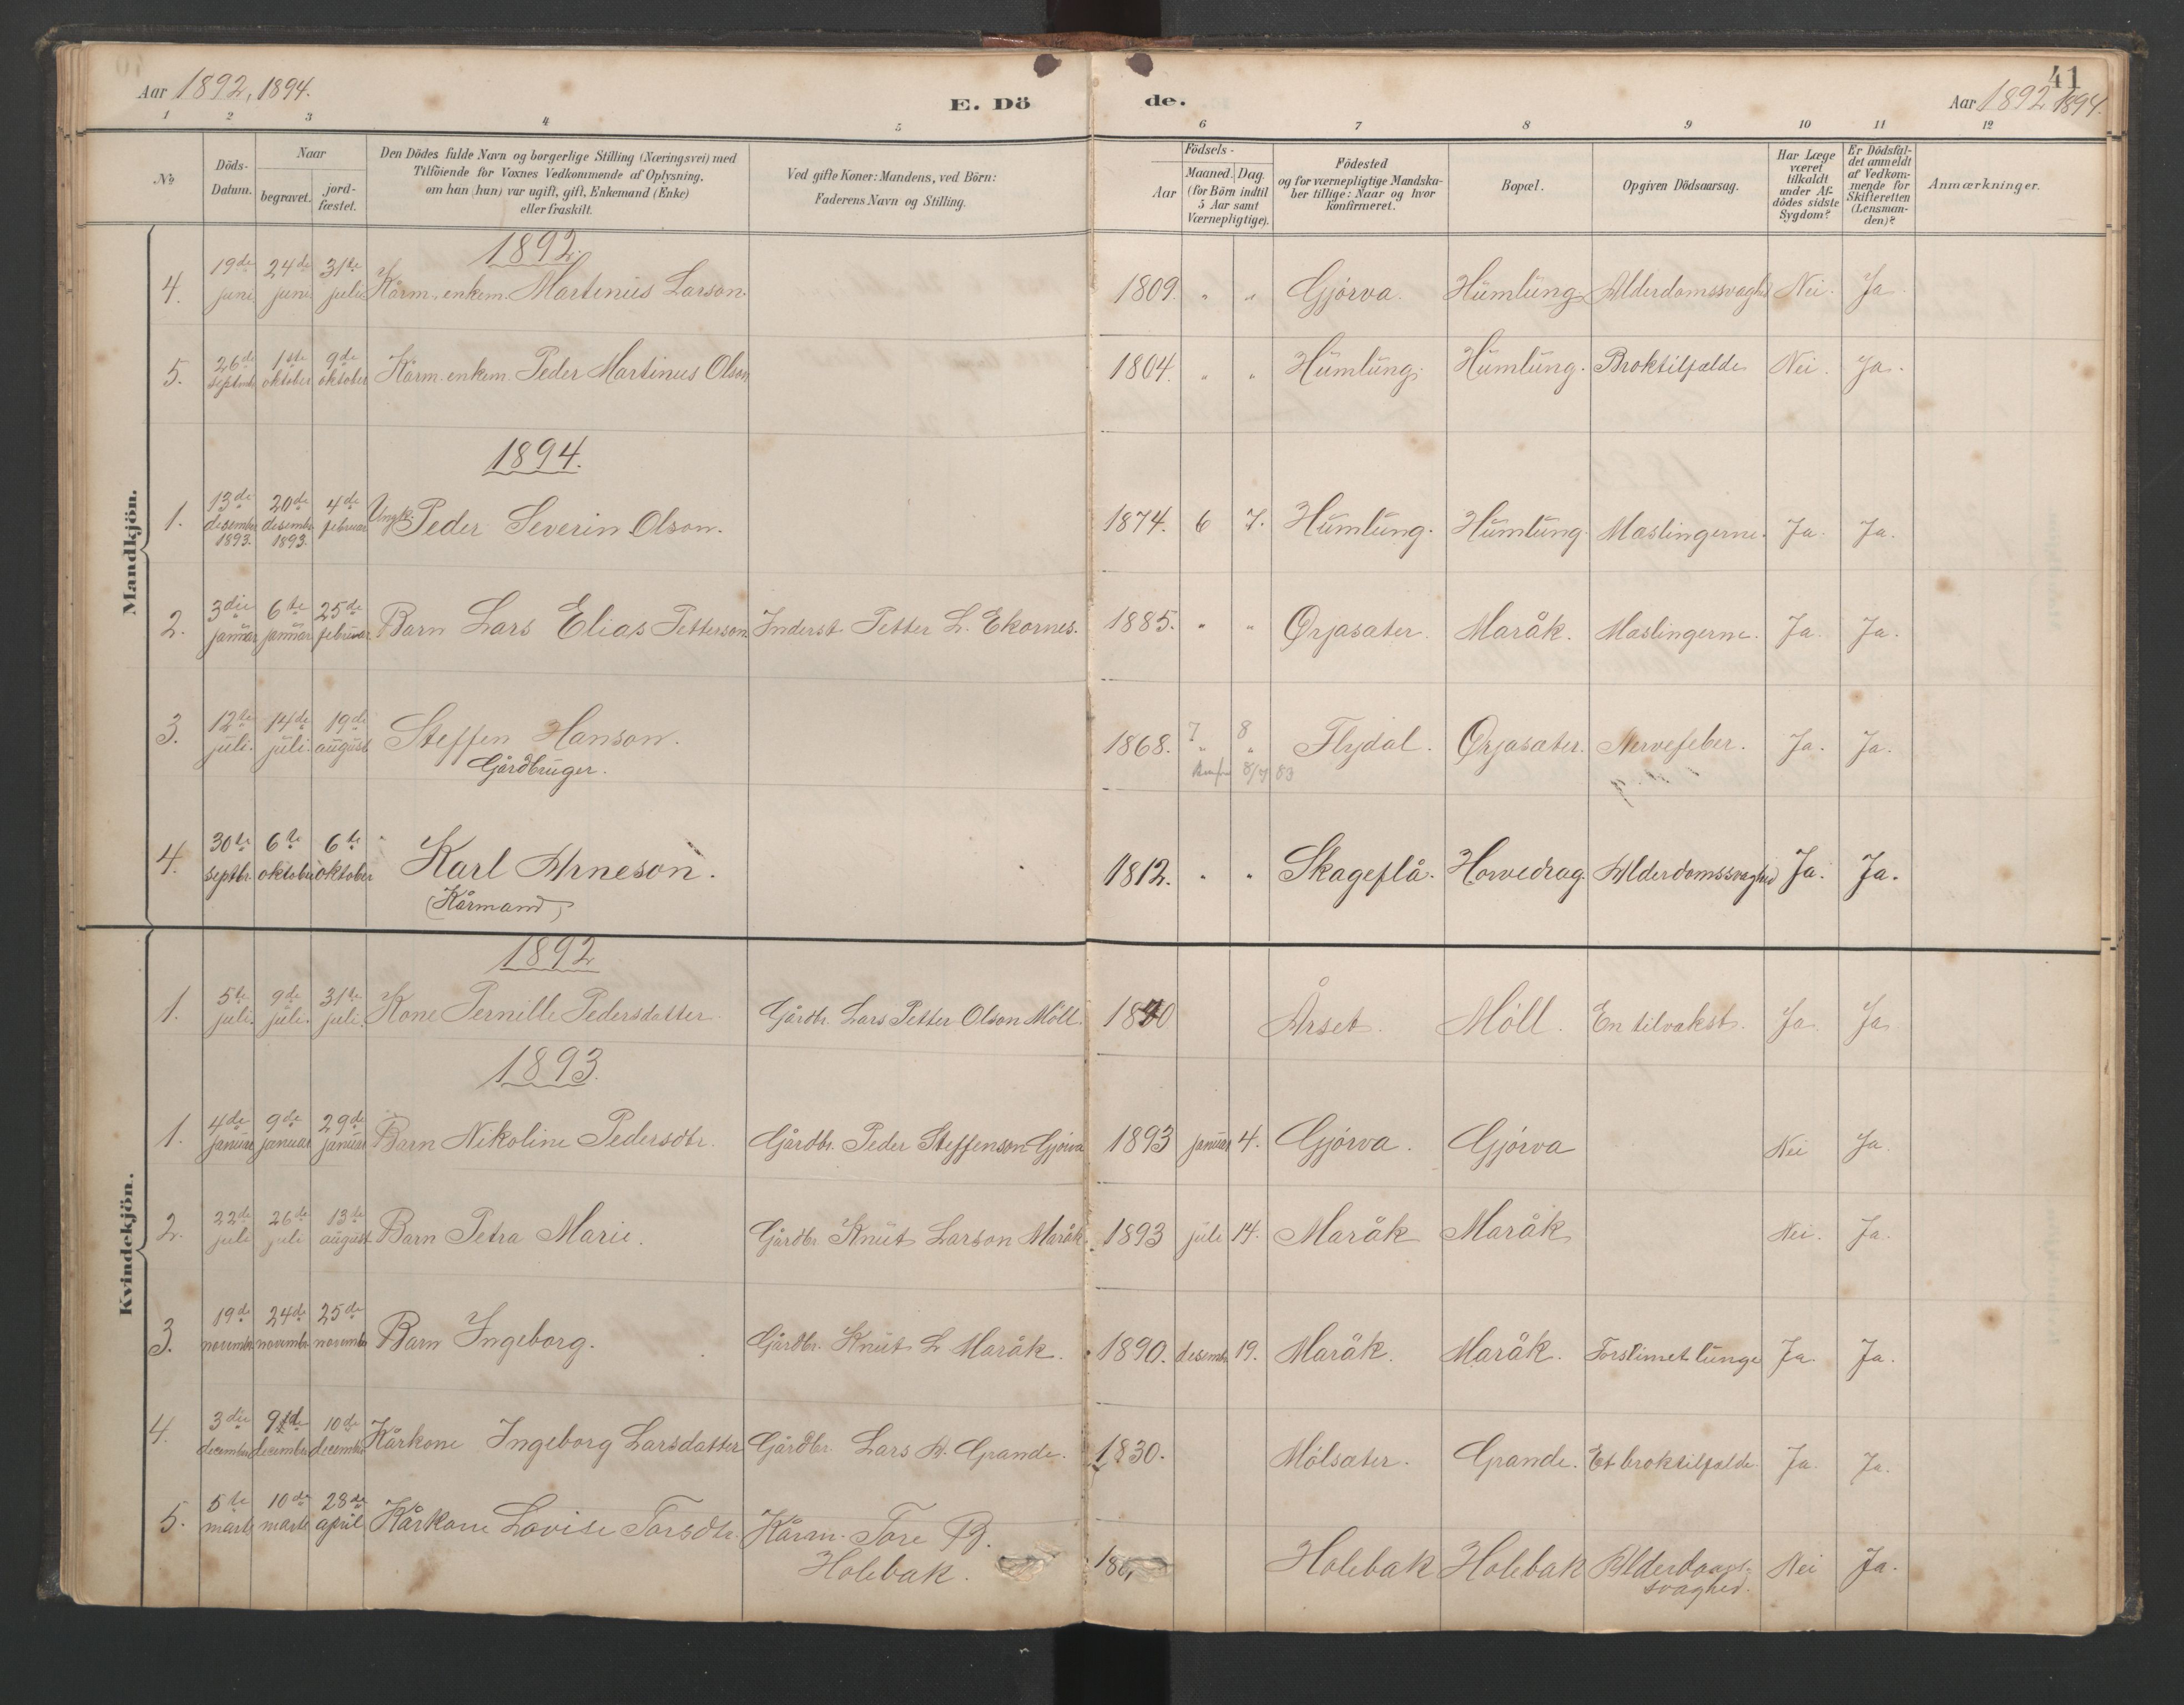 41
Aar 1892, 1894.
E. Dö de.
Aar 1892 1894.
1 2 3 4 5 6 7 8 9 10 11 12
No
Döds-Datum.
Naar
begravet.
jord-fæstet.
Den Dödes fulde Navn og borgerlige Stilling (Næringsvei) med
Tilföiende for Voxnes Vedkommende af Oplysning,
om han (hun) var ugift, gift, Enkemand (Enke)
eller fraskilt.
Ved gifte Koner: Mandens, ved Börn:
Faderens Navn og Stilling.
Födsels-
Aar
Maaned. Dag.
(for Börn indtil
5 Aar samt
Værnepligtige).
Födested
og for værnepligtige Mandska-
ber tillige: Naar og hvor
konfirmeret.
Bopæl.
Opgiven Dödsaarsag.
Har Læge
været
tilkaldt
under Af-
dödes sidste
Sygdom?
Er Dödsfal-
det anmeldt
af Vedkom-
mende for
Skifteretten
(Lensman-
den)?
Anmærkninger.
Mandkjön.
1892.
4. 19de juni 24de juni 31te juli Kårm. enkem. Martinus Larson. 1809. " " Gjörva. Humlung Alderdomssvaghed Nei. Ja.
5. 26de septemb. 1ste oktober 9de oktober Kårm. enkem. Peder Martinus Olson 1804. " " Humlung. Humlung. Broktilfælde Nei. Ja.
1894.
1. 13de desember 1893. 20de desembr 1893. 4de februar Ungk. Peder Severin Olson. 1874. 6 7. Humlung. Humlung. Mæslingerne. Ja. Ja.
2. 3die januar 6te januar 25de februar Barn Lars Elias Petterson Inderst Petter L. Ekornes. 1885. " " Ørjasæter. Maråk. Mæslingerne. Ja. Ja.
3. 12te juli. 14de juli. 19de august Steffen Hanson. 1868. 7 8 Flydal. Ørjasæter. Nervefeber. Ja. Ja.
Gårdbruger. 8/7 83
4. 30te septbr. 6te oktober 6te oktober Karl Arneson. 1812. " " Skageflå. Horvedrag. Alderdomssvaghed Ja. Ja.
(Kårmand)
Kvindekjön.
1892
1. 5te juli. 9de juli. 31te juli. Kone Pernille Pedersdatter. Gårdbr. Lars Petter Olson Möll. 1840 Årset. Möll. En tilvækst. Ja Ja
1893.
1. 4de januar 9de januar 29de januar Barn Nikoline Pedersdtr. Gårdbr. Peder Steffenson Gjörva 1893 januar 4. Gjörva. Gjörva Nei Ja.
2. 22de juli 26de juli 13de august Barn Petra Marie. Gårdbr. Knut Larson Maråk. 1893 juli 14. Maråk Maråk Nei. Ja.
3. 19de novembr. 24de novembr. 25de novembr Barn Ingeborg. Gårdbr. Knut L. Maråk. 1890. desembr 19. Maråk. Maråk. Forslimet lunge Ja. Ja.
4. 3die decembr 9de decembr 10de decembr Kårkone Ingeborg Larsdatter Gårdbr. Lars A. Grande. 1830. Mölsæter. Grande. Et broktilfælde. Ja. Ja.
5. 5te marts 10de marts 28de april Kårkone Lovise Torsdtr. Kårm. Tore B.
Holebak. Holebak Holebak Alderdoms-
svaghed. Nei Ja.